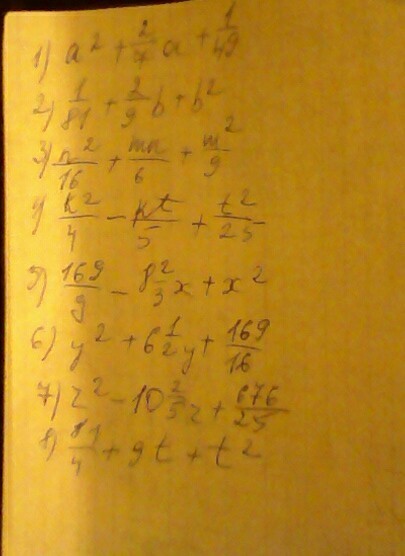 1) a² + 2/7 a + 1/49
2) 1/81 + 2/9 b + b²
3) n²/16 + mn/6 + m²/9
4) k²/4 - kt/5 + t²/25
5) 169/9 - 8 2/3 x + x²
6) y² + 6 1/2 y + 169/16
7) z² - 10 2/5 z + 676/25
8) 81/4 + 9t + t²